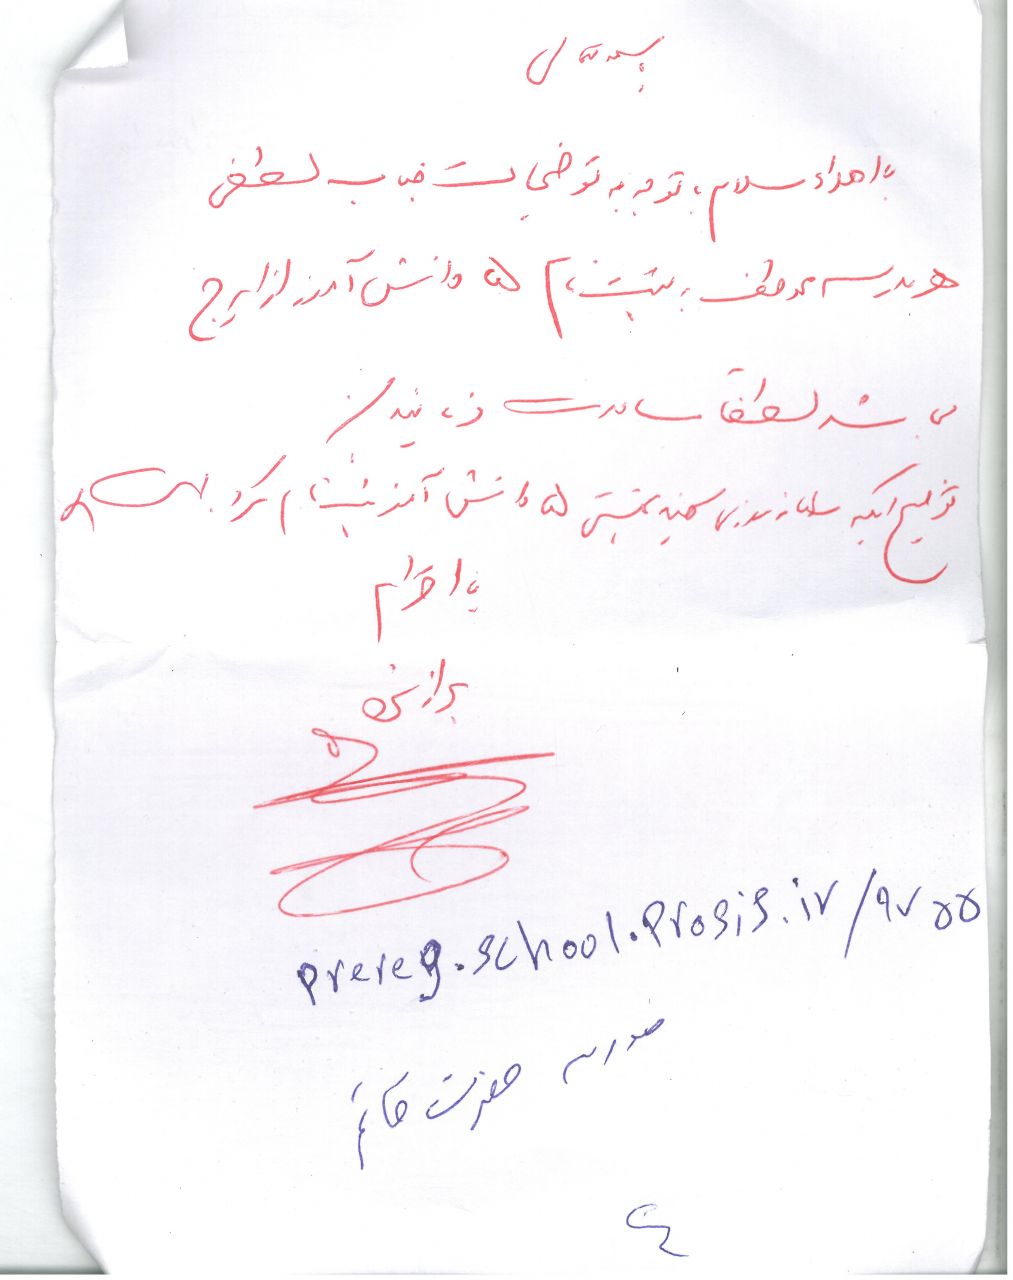 بسمه تعالی
با اهداء سلام، با توجه به توضیحات جناب لطفی
هر مدرسه موظف به ثبت نام ۵ دانش آموز از ایرج
می باشد لطفا مساعدت فرمایند
توضیح اینکه سامانه بایستی ۵ دانش آموز ثبت نام کرد
با احترام
برازنده
prereg.school.prosis.ir/9755
مدرسه حضرت قائم